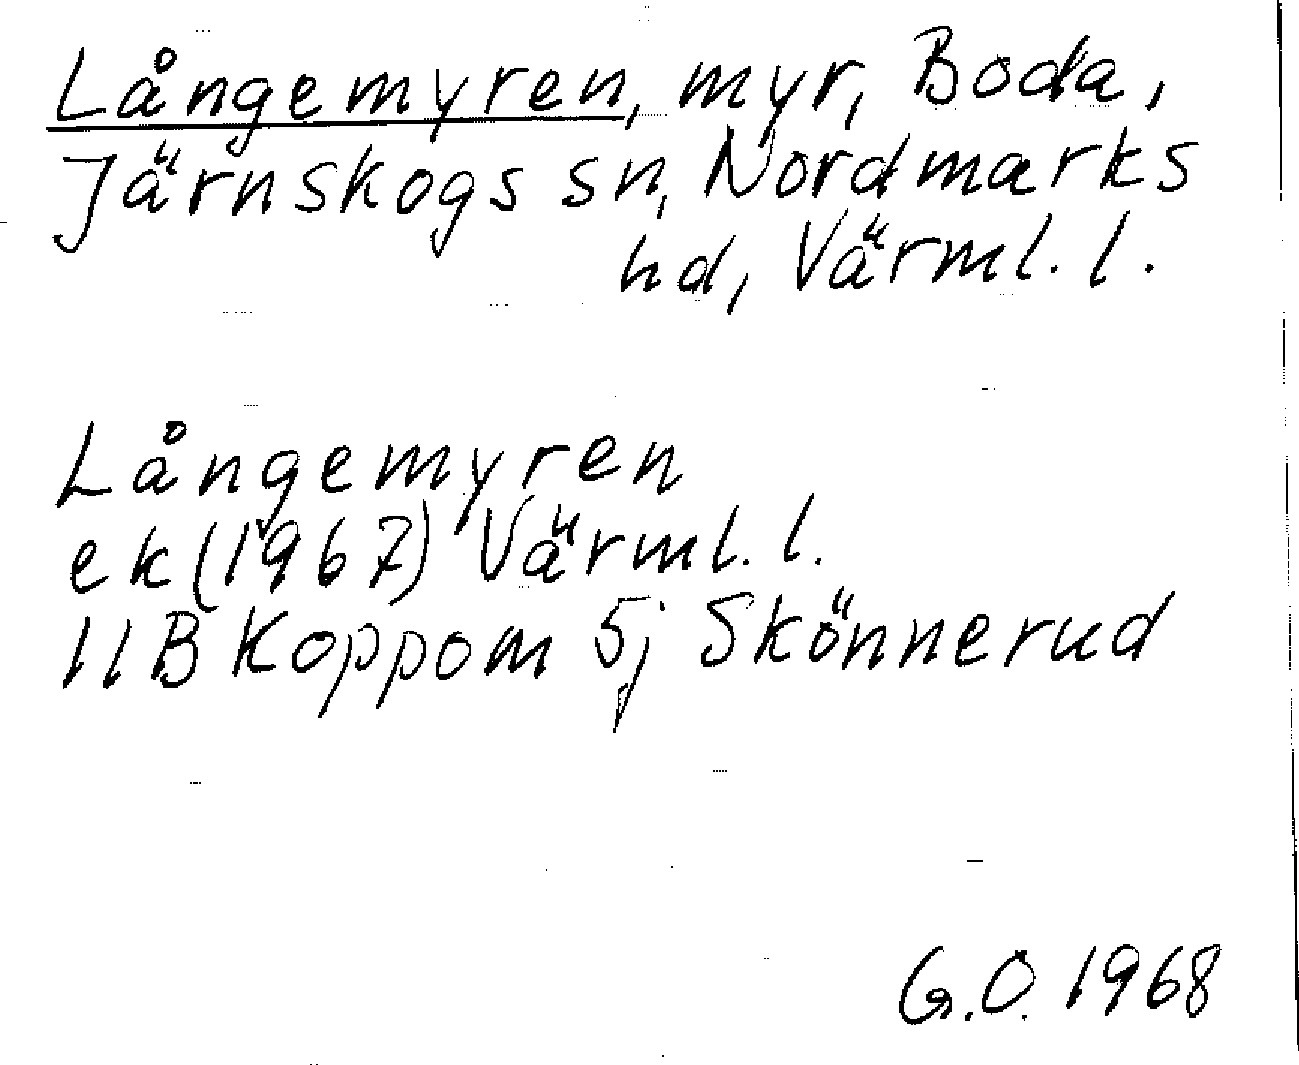 Långemyren, myr, Boda,
Järnskogs sn, Nordmarks
hd, Värml. l.
Långemyren
ek (1967) Värml. l.
11B Koppom 5j Skönnerud
G.O. 1968